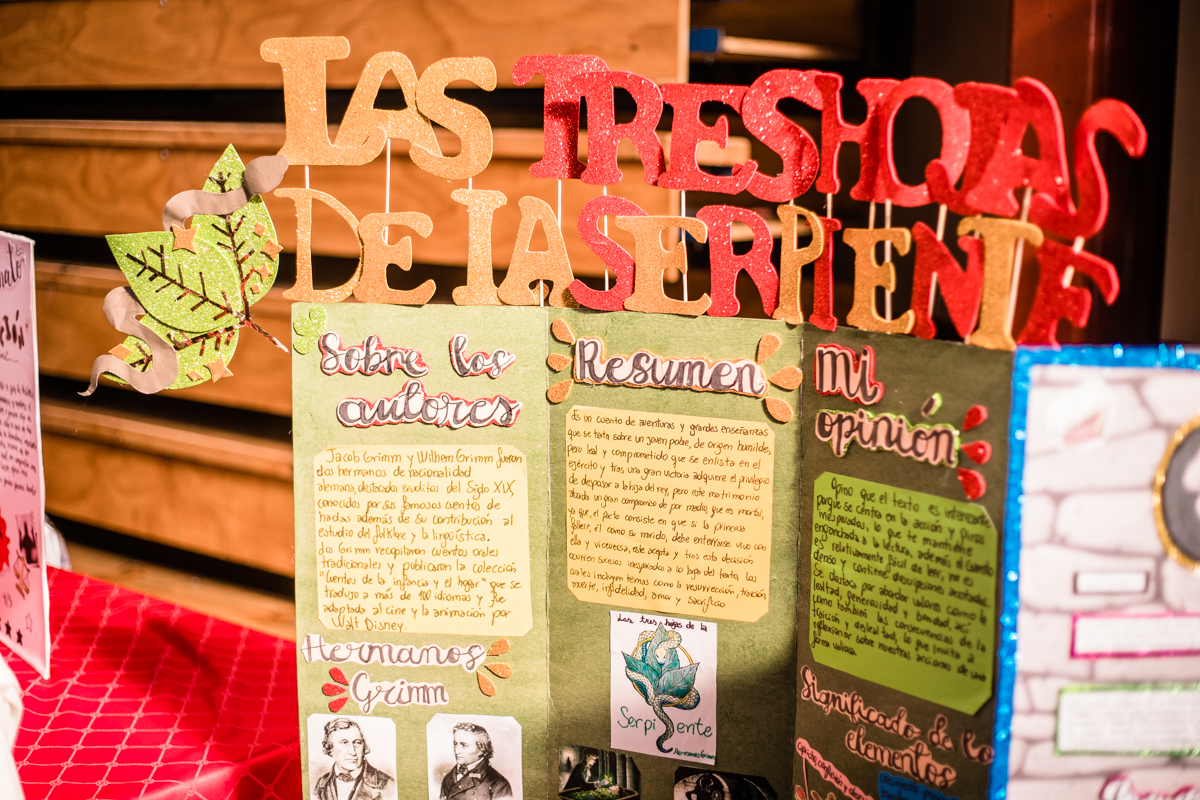 LAS TRES HOJAS
DE LA SERPIENTE
Sobre los
autores
Jacob Grimm y Wilhem Grimm fueron
dos hermanos de nacionalidad
alemana, destacados eruditos del Siglo XIX,
conocidos por sus famosos cuentos de
hadas además de su contribución al
estudio del folklore y la lingüística.
Los Grimm recopilaron cuentos orales
tradicionales y publicaron la colección
"Cuentos de la infancia y el hogar" que se
tradujo a más de 100 idiomas y fue
adaptada al cine y la animación por
Walt Disney.
Hermanos
Grimm
Resumen
Es un cuento de aventuras y grandes enseñanzas
que se trata sobre un joven pobre, de origen humilde,
pero leal y comprometido que se enlista en el
ejército y tras una gran victoria adquiere el privilegio
de desposar a la hija del rey, pero este matrimonio
aborda un gran compromiso de por medio, que es mortal,
ya que, el pacto consiste en que si la princesa
fallece, él como su marido, debe enterrarse vivo con
ella y viceversa, este acepta y tras esta decisión
ocurren sucesos inesperados a lo largo del texto, los
cuales incluyen temas como la resurrección, traición
muerte, infidelidad, amor y sacrificio
Las tres hojas de la
Serpiente
Hermanos Grimm
Mi
opinión
Opino que el texto es interesante
porque se centra en la acción y giros
inesperados, lo que te mantiene
enganchada a la lectura, además el cuento
es relativamente fácil de leer, no es
denso y contiene descripciones acotadas.
Se destaca por abordar valores como la
lealtad, generosidad y bondad, así
como también las consecuencias de la
traición y deslealtad, lo que invita a
reflexionar sobre nuestras acciones de una
forma valiosa.
Significado de lo
elementos